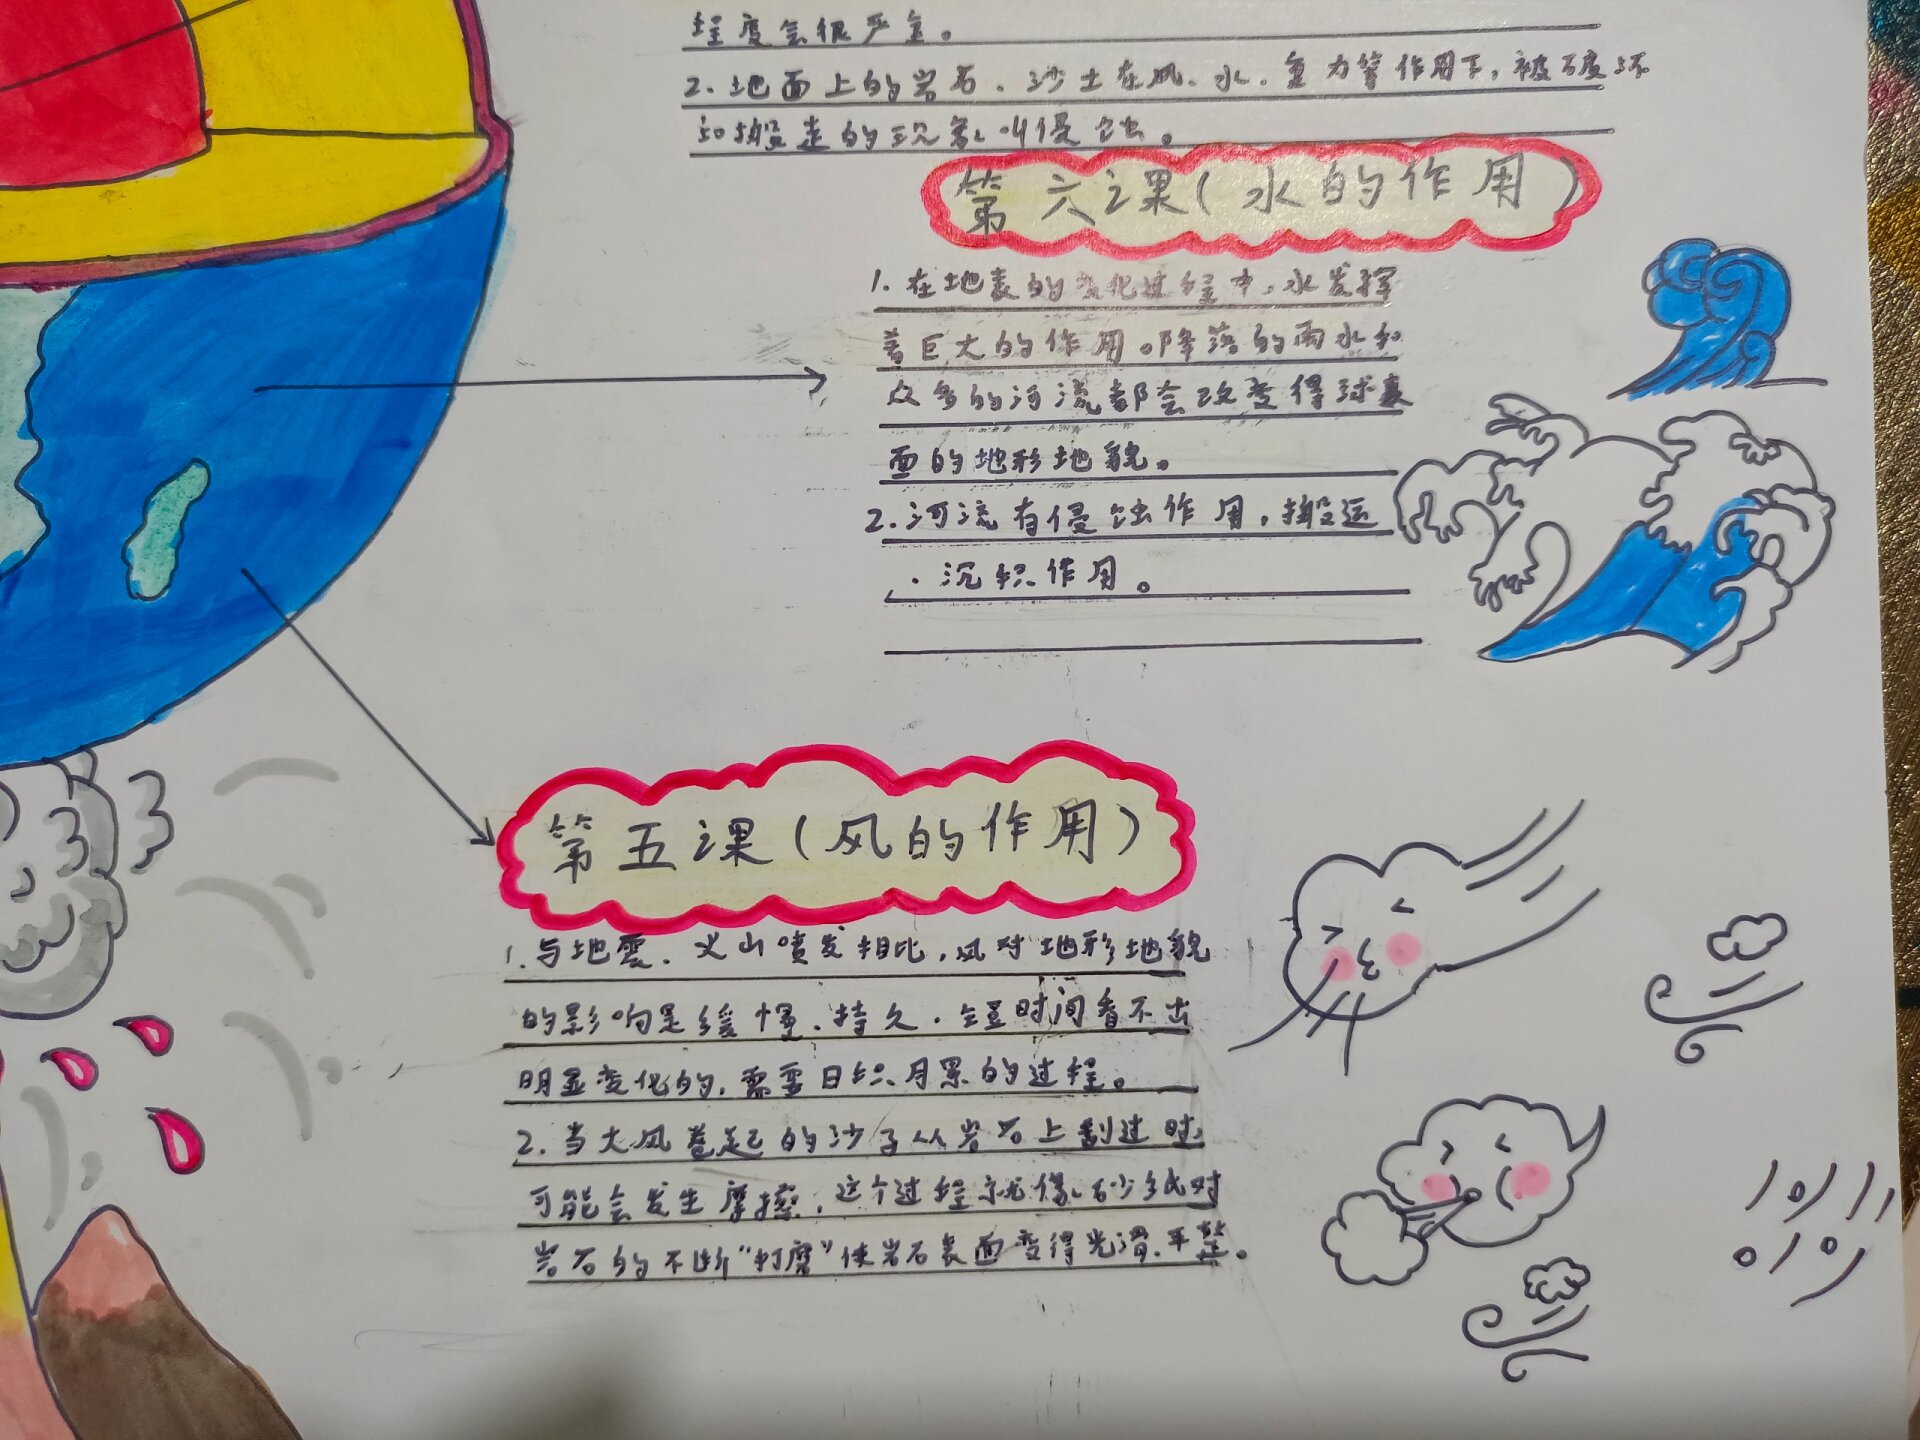 程度会很严重。
2.地面上的岩石、沙土在风、水、重力等作用下，被破坏
和搬走的现象叫侵蚀。
第六课（水的作用）
1.在地表的变化过程中，水发挥
着巨大的作用。降落的雨水和
众多的河流都会改变得球表
面的地形地貌。
2.河流有侵蚀作用，搬运
、沉积作用。
第五课（风的作用）
1.与地震、火山喷发相比，风对地形地貌
的影响是缓慢、持久、短时间看不出
明显变化的，需要日积月累的过程。
2.当大风卷起的沙子从岩石上刮过时，
可能会发生摩擦，这个过程就像砂纸对
岩石的不断“打磨”使岩石表面变得光滑、平整。